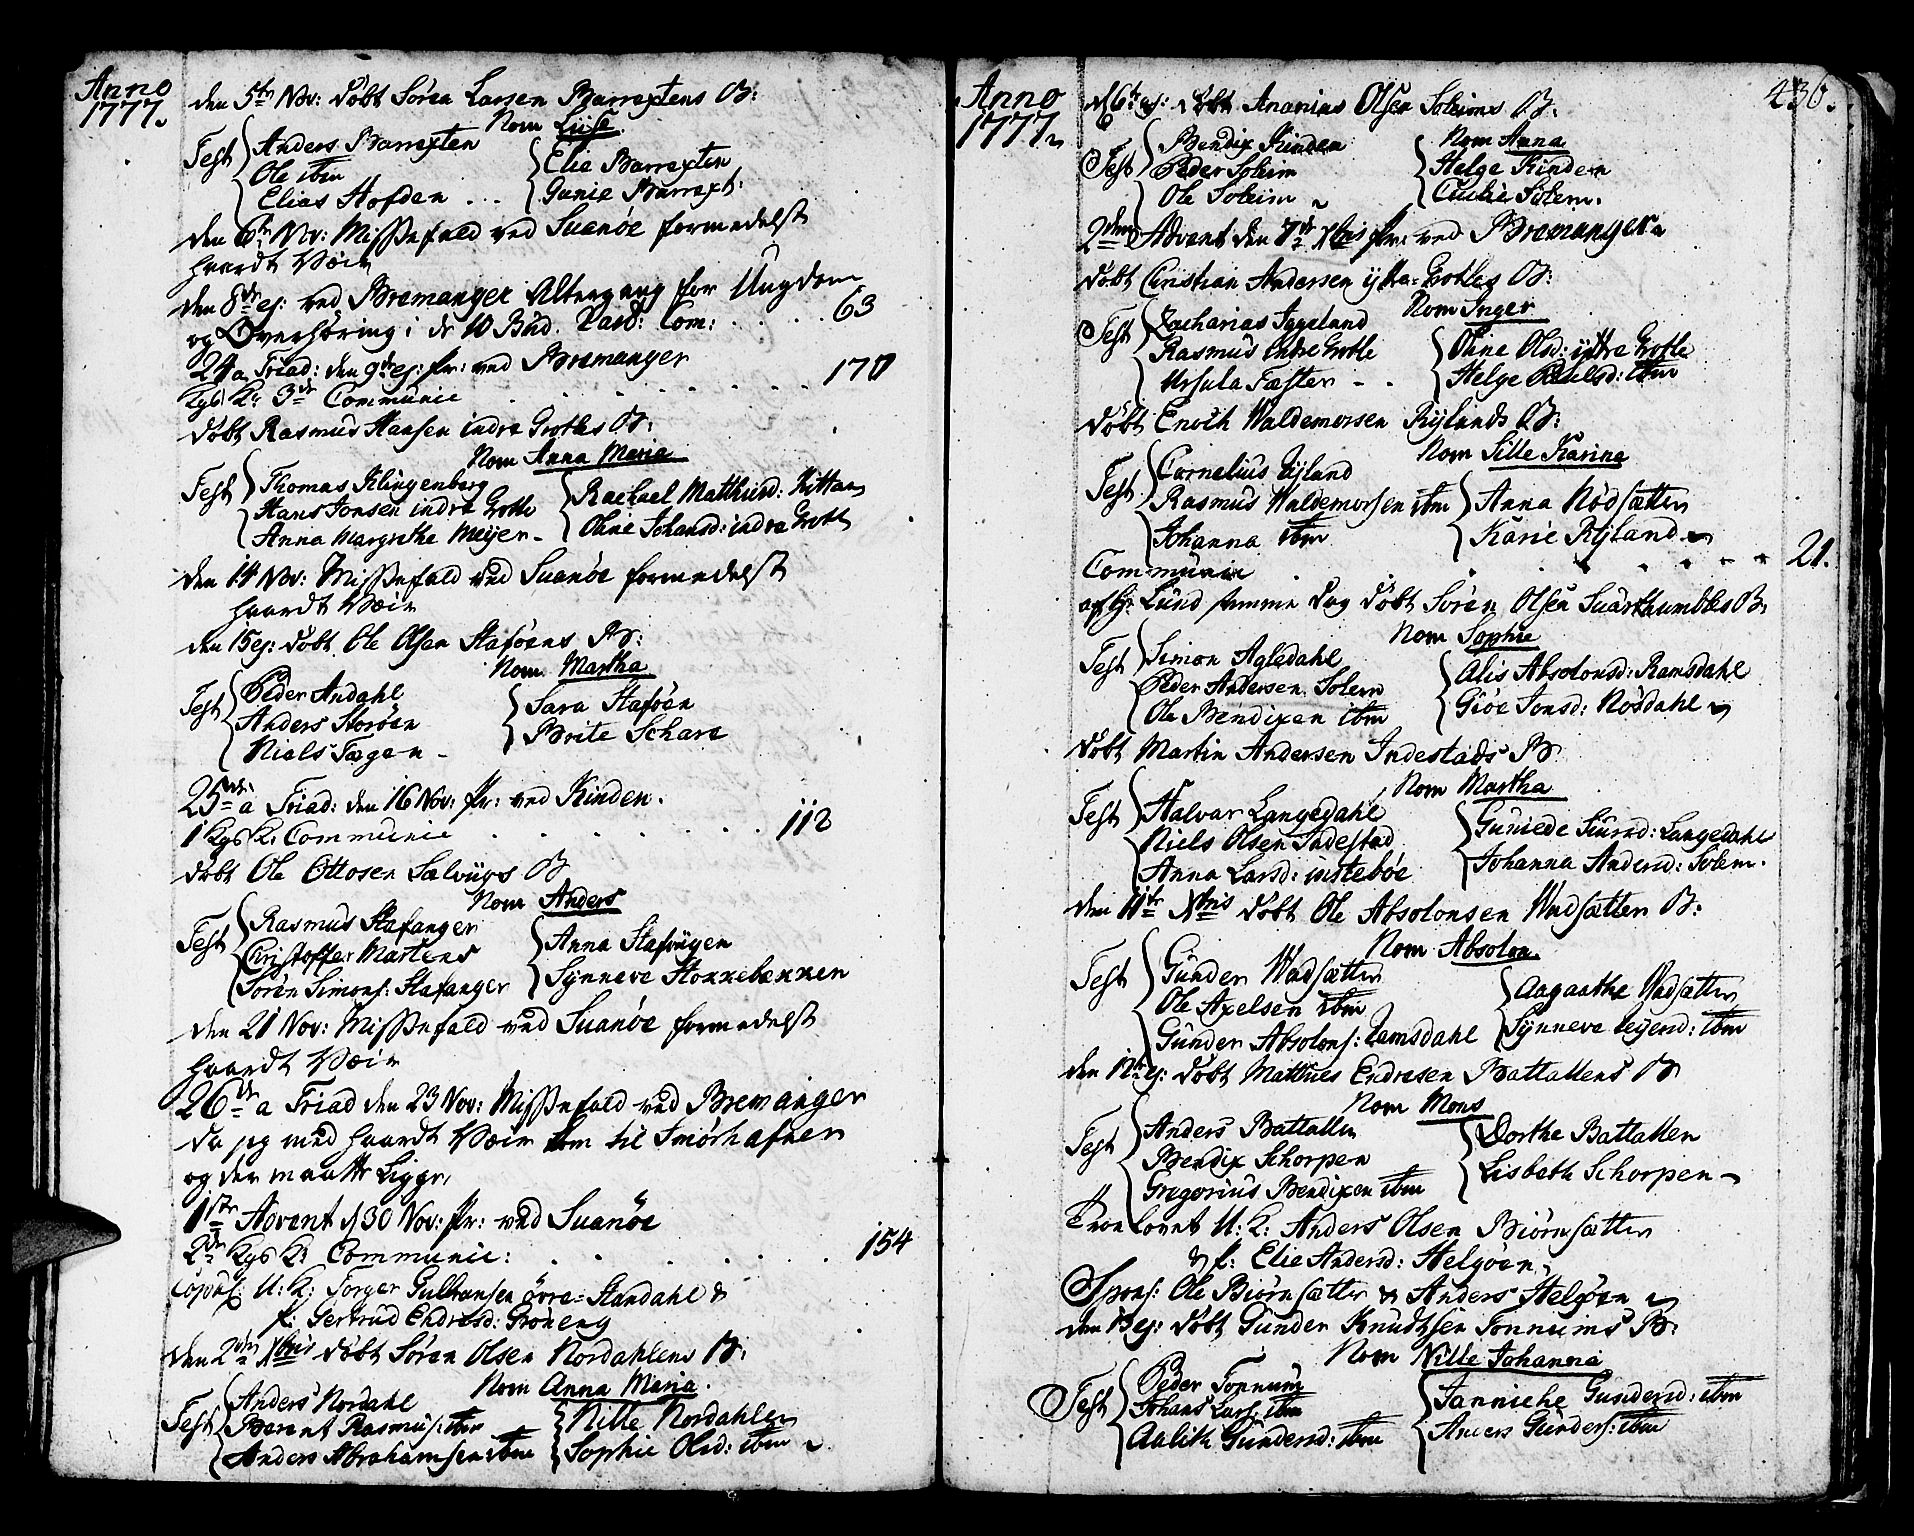 Anno
1777.
den 5te Nov: døbt Søren Larsen Barrextens B:
Nom Liise
Test Anders Barrexten
Ole ibm
Elias Hofden ...
Elie Barrexten
Gunie Barrext:
den 6te Nov: Missefald ved Suanøe formedelst
haardt Veir
den 8de ej: ved Bremanger Altergang for Ungdom
og Overhøring i de 10 Bud. Com: 63
24 a Triad: den 9de ej: Pr: ved Bremanger
Kgb K: 3de Communie 170
døbt Rasmus Hansen indre Grotles B:
Nom Anna Maria
Test Thomas Klingenberg
Hans Jonsen indre Grotle
Anna Margrethe Meijer
Rachael Matthiisd:
Ohne Johansd: indre Grotl
den 14 Nov: Missefald ved Suanøe formedelst
haardt Veir
den 15 ej: døbt Ole Olsen Staføens B:
Nom Martha
Test Peder Andahl
Anders Storøen
Niels Tægen
Sara Staføen
Brite Schare
25de a Triad: den 16 Nov: Pr: ved Kinden.
1 Kgb K: Communie 112
døbt Ole Ottosen Sælvugs B
Nom Anders
Test Rasmus Stafanger
Christoffer Martens
Søren Simons: Stafanger
Anna Stafangen
Synneve Stokkebekken
den 21 Nov: Missefald ved Suanøe formedelst
haardt Veir
26de a Triad den 23 Nov: Missefald ved Bremanger
da jeg med haardt Veir kom til Smørhafnen
og der maatte Ligge,
1ste Advent d 30 Nov: Pr: ved Suanøe
2de Kgb K: Communie: 154
Copul: U: K: Torger Gulbransen øvre-Standahl &
P: Gertrud Endresd: Grøneng
den 2den Xbris døbt Søren Olsen Nordahlens B:
Nom Anna Maria.
Test Anders Nordahl
Berent Rasmus: ibm
Anders Abrahamsen: ibm
Nille Nordahlen
Sophie Olsd: ibm
Anno
1777
436.
d 6te ej: døbt Ananias Olsen Soleims B:
Nom Anna
Test Bendix Kinden
Peder Soleim
Ole Soleim
Helge Kinden
Cicilie Solem.
2den Advent den 7de Xbris Pr: ved Bremanger
døbt Christian Andersen ijttre-Grotles B:
Nom Inger
Test Zacharias Iggeland
Rasmus indre Grotle
Ursula Fæster
Ohne Olsd: ijttre Grotle
Helge Poulsd: ibm
døbt Enoch Waldemorsen Rylands B:
Nom Sille Karine
Test Cornelius Ryland
Rasmus Waldemorsen ibm
Johanna ibm
Anna Nødsætter
Karie Ryland
Communie 21.
af Hr: Lund samme Dag døbt Søren Olsen Suarthumbles B:
Nom Sophie
Test Simon Agledahl
Peder Andersen Solem
Ole Bendixen ibm
Alis Absolonsd: Ramsdahl
Giøe Jonsd: Nøsdahl
døbt Martin Andersen Indestads B
Nom Martha
Test Halvar Langedahl
Niels Olsen Indestad
Anna Larsd: instebøe
Guniede Siursd: Langedahl
Johanna Andersd: Solem.
den 11te Xbris døbt Ole Absolonsen Wadsætter B:
Nom Absolon.
Test Gunder Wadsætter
Ole Axelsen ibm
Gunder Absolons: Ramsdahl
Aagaathe Vadsætter
Synneve ibm
den 12te ej: døbt Matthies Endresen Battallens B
Nom Mons
Test Anders Battallen
Bendix Schorpen
Gregorius Bendixen ibm
Dorthe Battallen
Lisbeth Schorpen
Troelovet U: K: Anders Olsen Biørnsætter
& P: Elie Andersd: Helgøen
Spons: Ole Biørnsætter & Anders Helgøen
den 13 ej: døbt Gunder Knudtsen Tonnums B:
Nom Nille Johanna
Test Peder Tonnum
Johans Lars: ibm
Aalith Gundersd: ibm
Janniche Gundersd: ibm
Anders Gunders: ibm